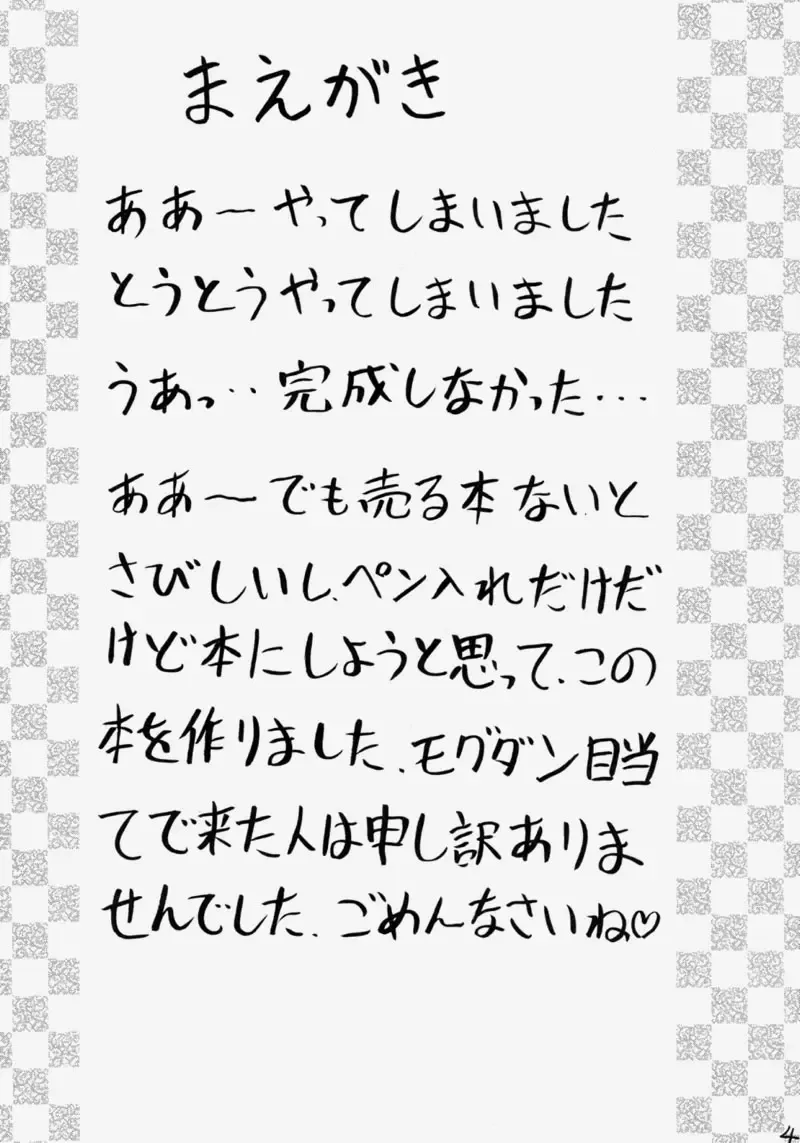 まえがき
ああ〜やってしまいました
とうとうやってしまいました
うあっ‥完成しなかった…
ああ〜でも売る本ないと
さびしいし、ペン入れだけだ
けど本にしようと思って、この
本を作りました、モグダン目当
てで来た人は申し訳ありま
せんでした、ごめんなさいね♡
4